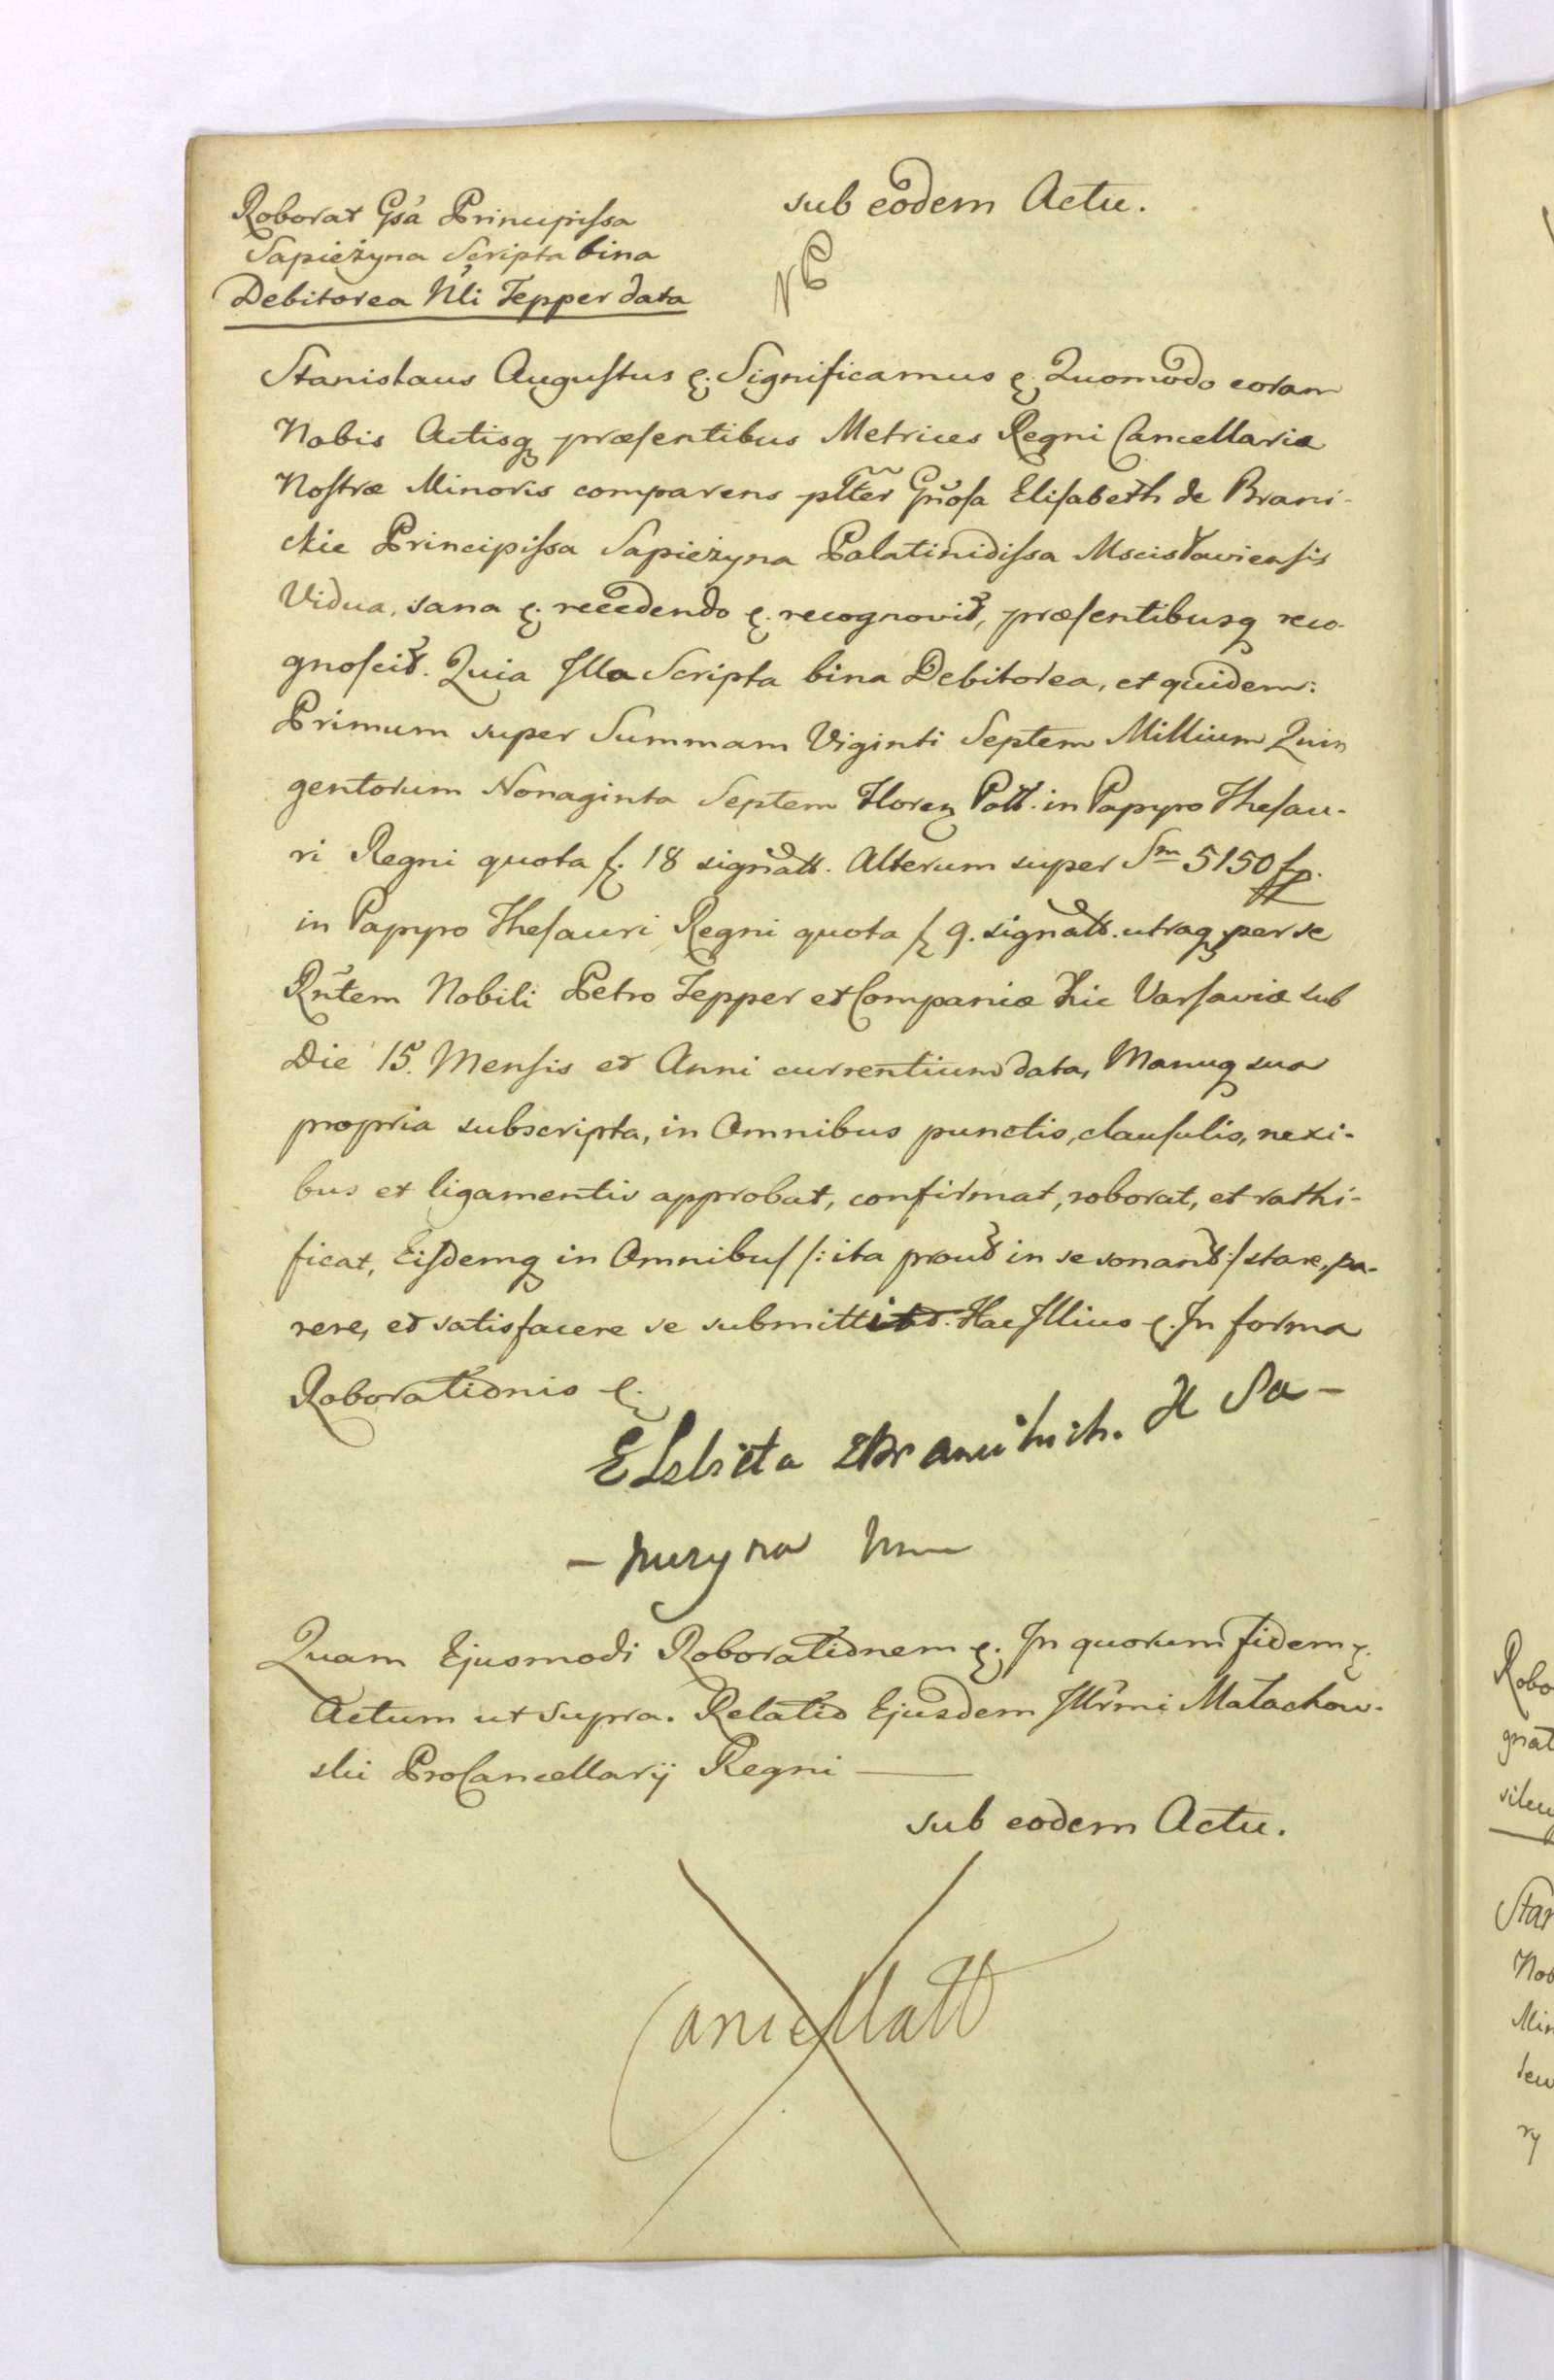 sub eodem Actu.
Roborat Gsa Principissa
Sapieżyna Scripta bina
Debitorea Nli Tepper data
Stanislaus Augustus &. Significamus &. Quomodo coram
Nobis Actisq præsentibus Metrices Regni Cancellariæ
Nostræ Minoris comparens pltter Gnosa Elisabeth de Brani-
ckie Principissa Sapieżyna Palatinidissa Mscislaviensis
Vidua, sana &. recedendo &. recognovit, præsentibusq reco-
gnoscit. Quia Illa Scripta bina Debitorea, et quidem:
Primum super Summam Viginti Septem Millium Quin
gentorum Nonaginta Septem Floren Poll. in Papyro Thesau-
ri Regni quota f. 18 signatt. Alterum super Sm 5150 fp.
in Papyro Thesauri Regni quota f 9. signatt. utraq per se
Rntem Nobili Petro Tepper et Companiæ hic Varsaviæ sub
Die 15. Mensis et Anni currentium data, Manuq sua
propria subscripta, in Omnibus punctis, clausulis, nexi-
bus et ligamentis approbat, confirmat, roborat, et rathi-
ficat, Eisdemq in Omnibus /: ita prout in se sonant :/ stare, pa-
rere, et satisfacere se submittit. Hac Illius &. In forma
Roborationis &.
Elzbieta z Branickich. X Sa-
- piezyna
Quam Ejusmodi Roborationem &. In quorum fidem &.
Actum ut supra. Relatio Ejusdem Illrmi Małachow-
ski ProCancellarij Regni
sub eodem Actu.
Cancellatt
Robo
gnat
Star
Nob
Min